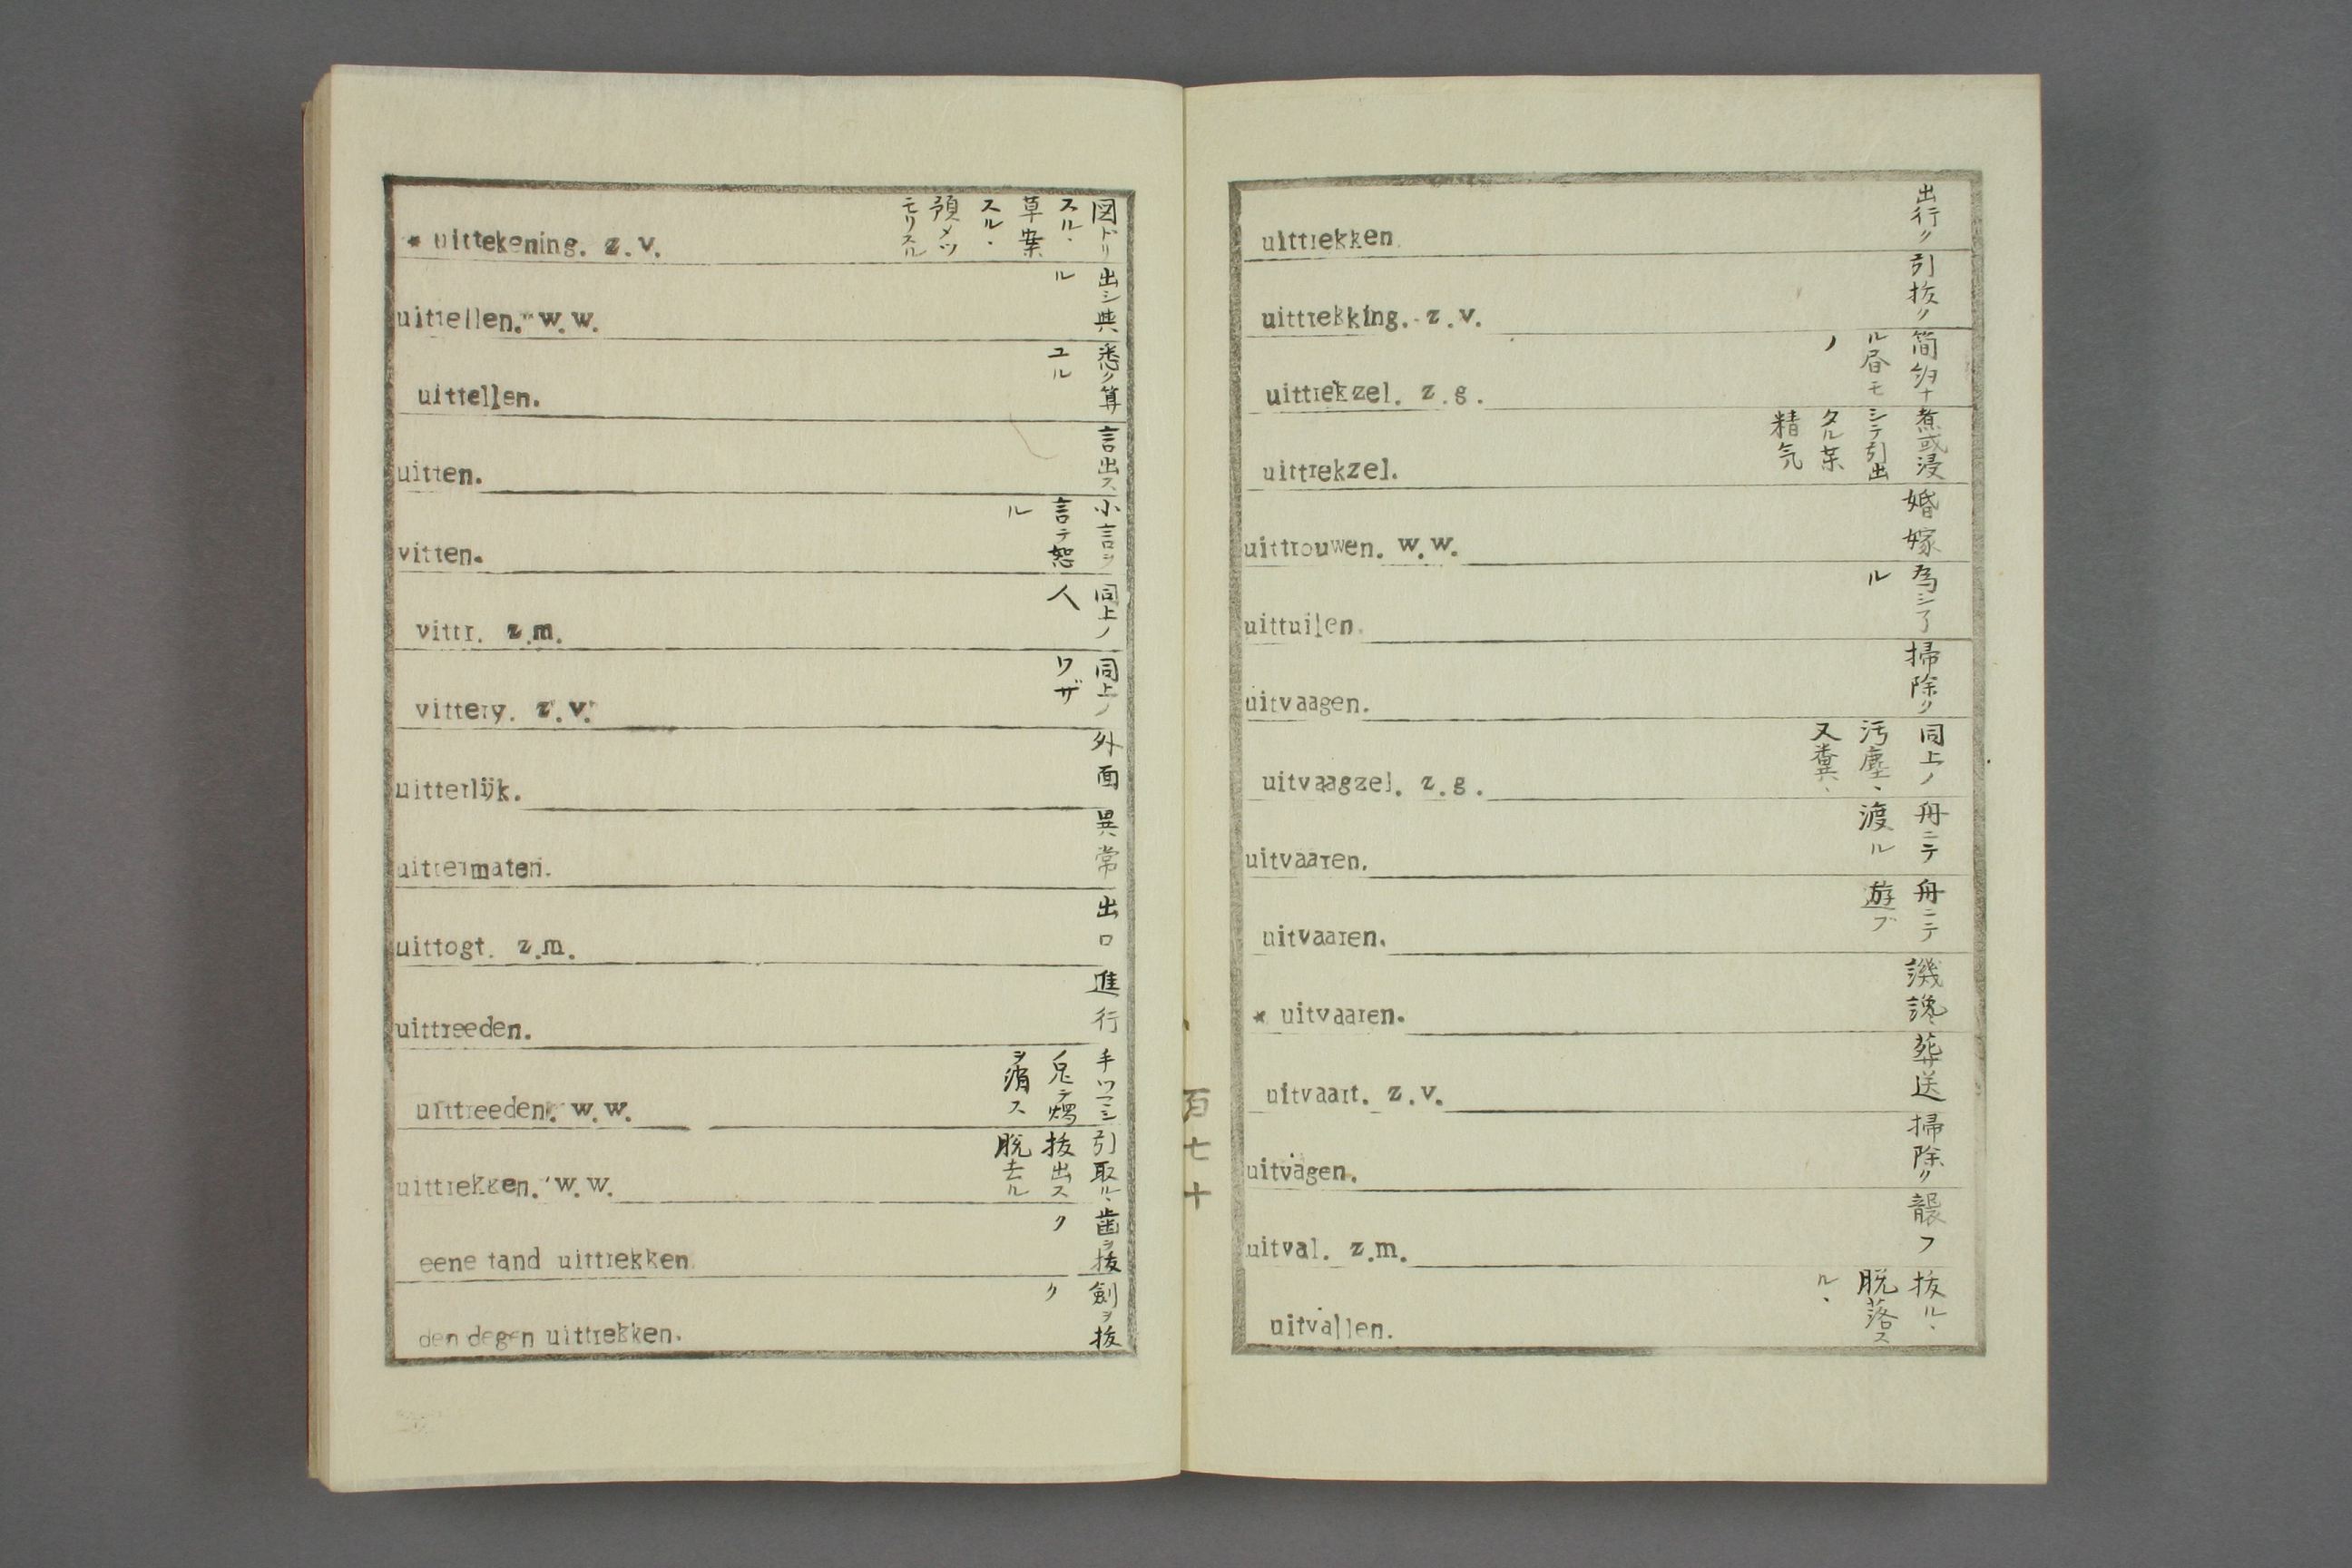 * uittekening. z.v.
図ドリスル・草案スル・預メツモリスル
uittellen. w.w.
出シ與ル
uittellen.
悉ク算ユル
uitten.
言出ス
vitten.
小言ヲ言テ恕ル
vittr. z.m.
同上ノ人
vittery. z.v.
同上ノワザ
uitterlijk.
外面
uittermaten.
異常
uittogt. z.m.
出口
uittreeden.
進行
uittreeden. w.w.
uittrekken. w.w.
引取ル・抜出ス脱去ル
eene tand uittrekken.
歯ヲ抜ク
den degen uittrekken.
劍ヲ抜ク
百七十
uittrekken
出行ク
uittrekking. z.v.
引抜ク
uittrekzel. z.g.
uittrekzel.
煮或浸シテ引出タル藥精気
uittrouwen. w.w.
婚嫁
uittuilen.
為シ了ル
uitvaagen.
掃除ク
uitvaagzel. z.g.
同上ノ汚塵、又糞、
uitvaaren.
舟ニテ渡ル
uitvaaren.
舟ニテ遊ブ
* uitvaaren.
譏讒
uitvaart. z.v.
葬送
uitvagen.
掃除ク
uitval. z.m.
襲フ
uitvallen.
抜ル、脱落スル、